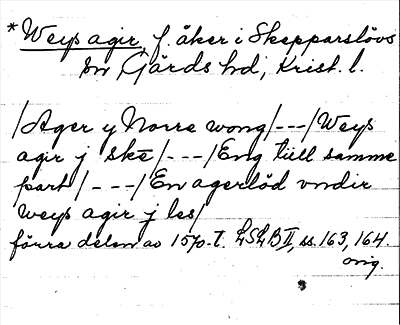 * Weys agir, f. åker i Skepparslövs
sn Gärds hd, Krist. l.
/Ager y Norre wong/---/Weys
agir j skē/---/Eng tiill samme
part/---/En agerlöd vndir
weys agir j les/
förra delen av 1570-t. LSLB II, ss. 163, 164.
orig.